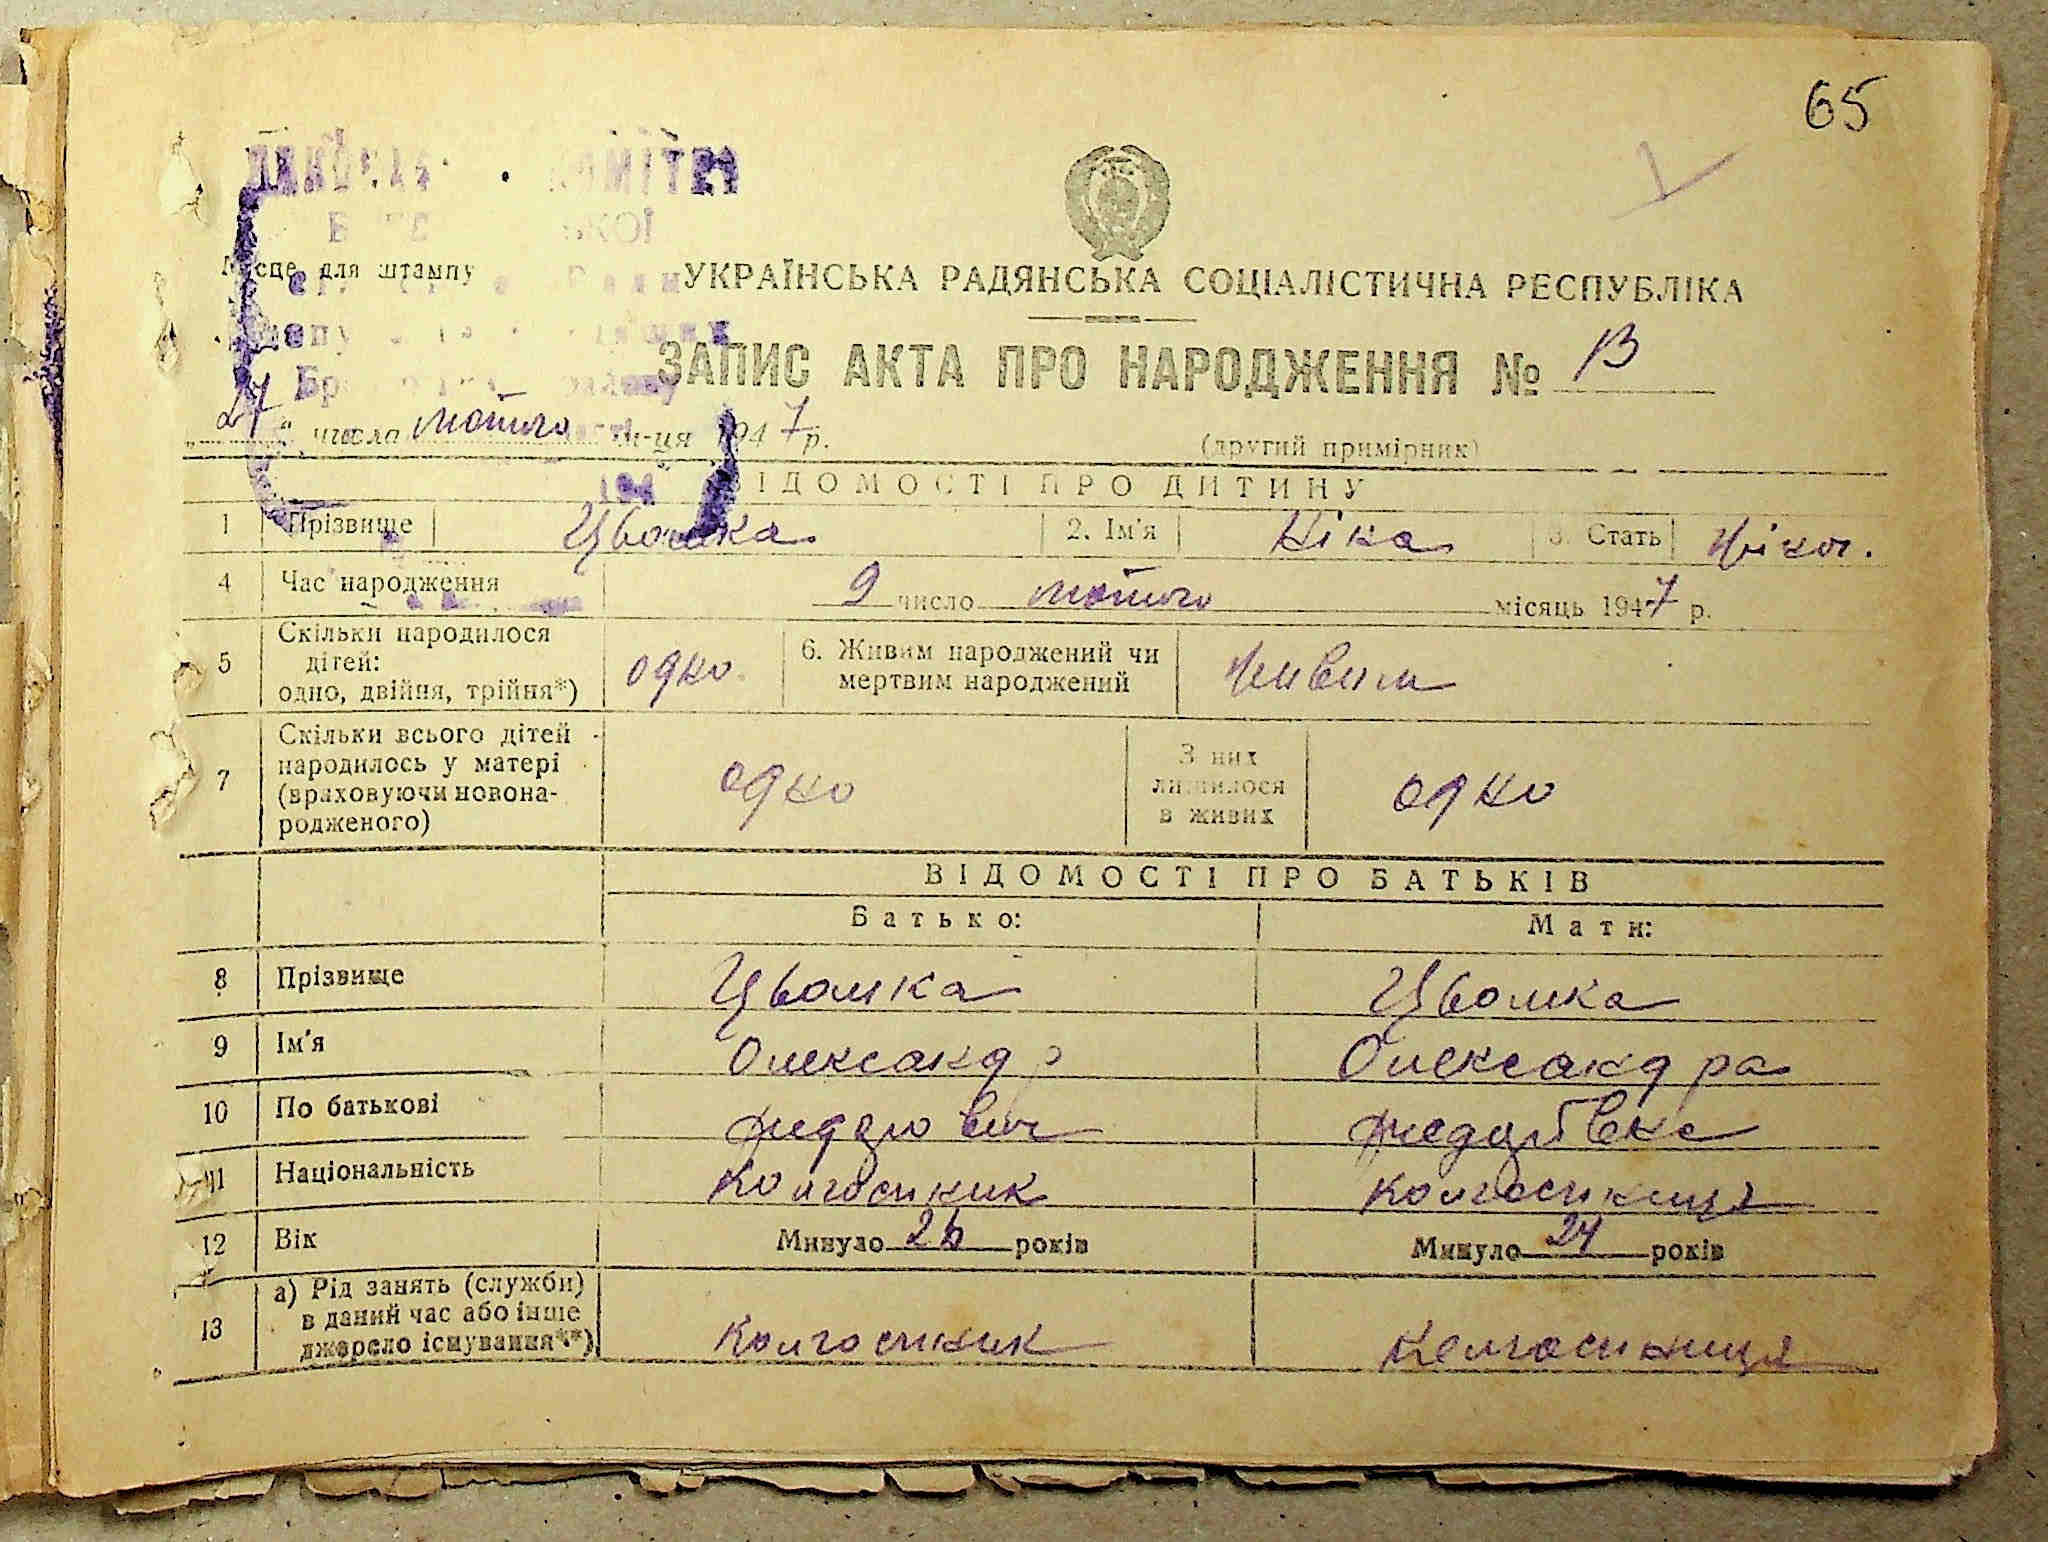 65
Місце для штампу
УКРАЇНСЬКА РАДЯНСЬКА СОЦІАЛІСТИЧНА РЕСПУБЛІКА
ЗАПИС АКТА ПРО НАРОДЖЕННЯ № 13
„27“ числа лютого м-ця 1947 р.
(другий примірник)
ВІДОМОСТІ ПРО ДИТИНУ
1 Прізвище Цьомка 2. Ім'я Ніна 3. Стать жіноч.
4 Час народження 9 число лютого місяць 1947 р.
5 Скільки народилося дітей: одно, двійня, трійня*) одно. 6. Живим народжений чи мертвим народжений живим
7 Скільки всього дітей народилось у матері (враховуючи новонародженого) одно З них лишилося в живих одно
ВІДОМОСТІ ПРО БАТЬКІВ
Батько: Мати:
8 Прізвище Цьомка Цьомка
9 Ім'я Олександр Олександра
10 По батькові
11 Національність Колгоспник Колгоспниця
12 Вік Минуло 26 років Минуло 24 років
13 а) Рід занять (служби) в даний час або інше джерело існування**) Колгоспник Колгоспниця